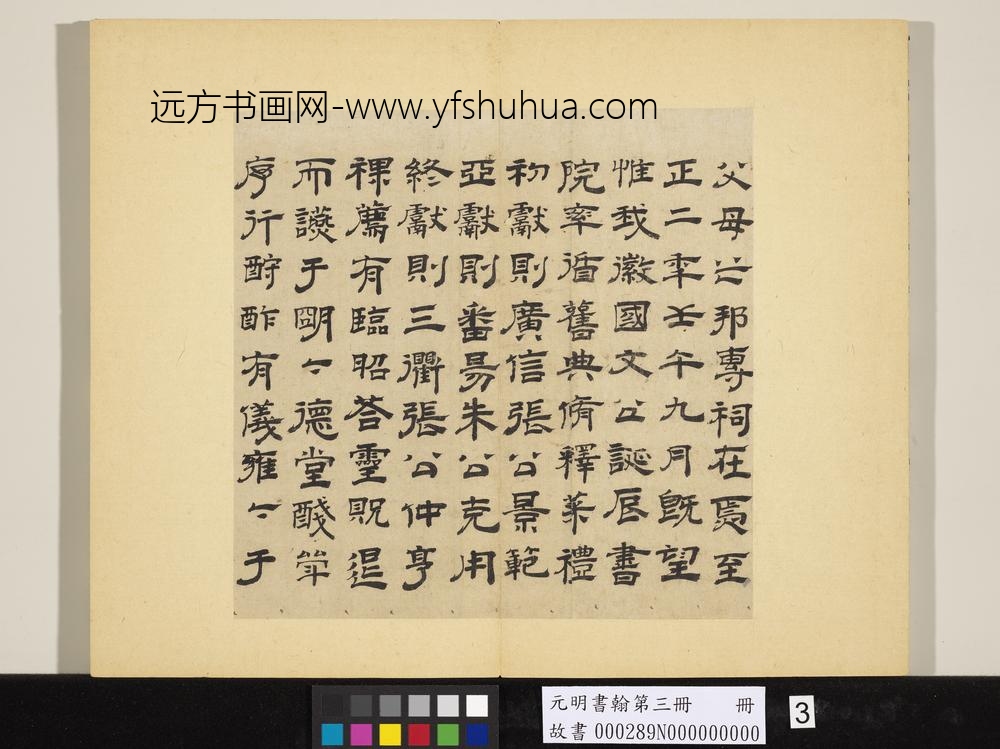 远方书画网-www.yfshuhua.com
父母之邦專祠在焉至
正二年壬午九月既望
惟我徽國文公誕辰書
院率循舊典脩釋菜禮
初獻則廣信張公景範
亞獻則番昜朱公克用
終獻則三衢張公仲亨
祼薦有臨昭荅靈貺退
而讌于明〻德堂醆斝
序行酧酢有儀雍〻于
元明書翰第三冊 冊
故書 000289N000000000
3